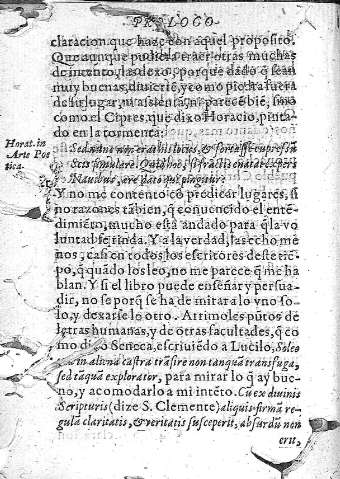 PROLOGO
claracion que haze con aquel proposito.
Que aunque pudiera traer otras muchas
de intento, las dexo, porque dado q̃ sean
muy buenas, diuiertẽ, y como piedra fuera
de su lugar, ni assienta, ni parece biẽ, sino
como el Cipres, que dixo Horacio, pinta-
do en la tormenta:
Horat. in
Arte Poe
tica.
Sed nunc non erat his locus, & fortasse cupressũ
Scis simulare. Quid hoc, si fractis enatat expers
Nauibus, ære dato qui pingitur?
Y no me contento cõ predicar lugares, si
no razones tãbien, q̃ conuencido el entẽ-
dimiẽto, mucho està andado para q̃ la vo
luntad se rinda. Y a la verdad, las echo me
nos, casi en todos los escritores deste tiẽ-
po, q̃ quãdo los leo, no me parece q̃ me ha
blan. Y si el libro puede enseñar y persua-
dir, no se porq̃ se ha de mirar a lo vno so-
lo, y dexarse lo otro. Arrimoles pũtos de
letras humanas, y de otras facultades, q̃ co
mo dixo Seneca, escriuiẽdo a Lucilo, Soleo
in aliena castra trãsire non tanquã transfuga,
sed tãquã explorator, para mirar lo q̃ ay bue-
no, y acomodarlo a mi intẽto. Cũ ex diuinis
Scripturis (dize S. Clemente) aliquis firmã re-
gulã claritatis, & veritatis susceperit, absurdũ non
erit,